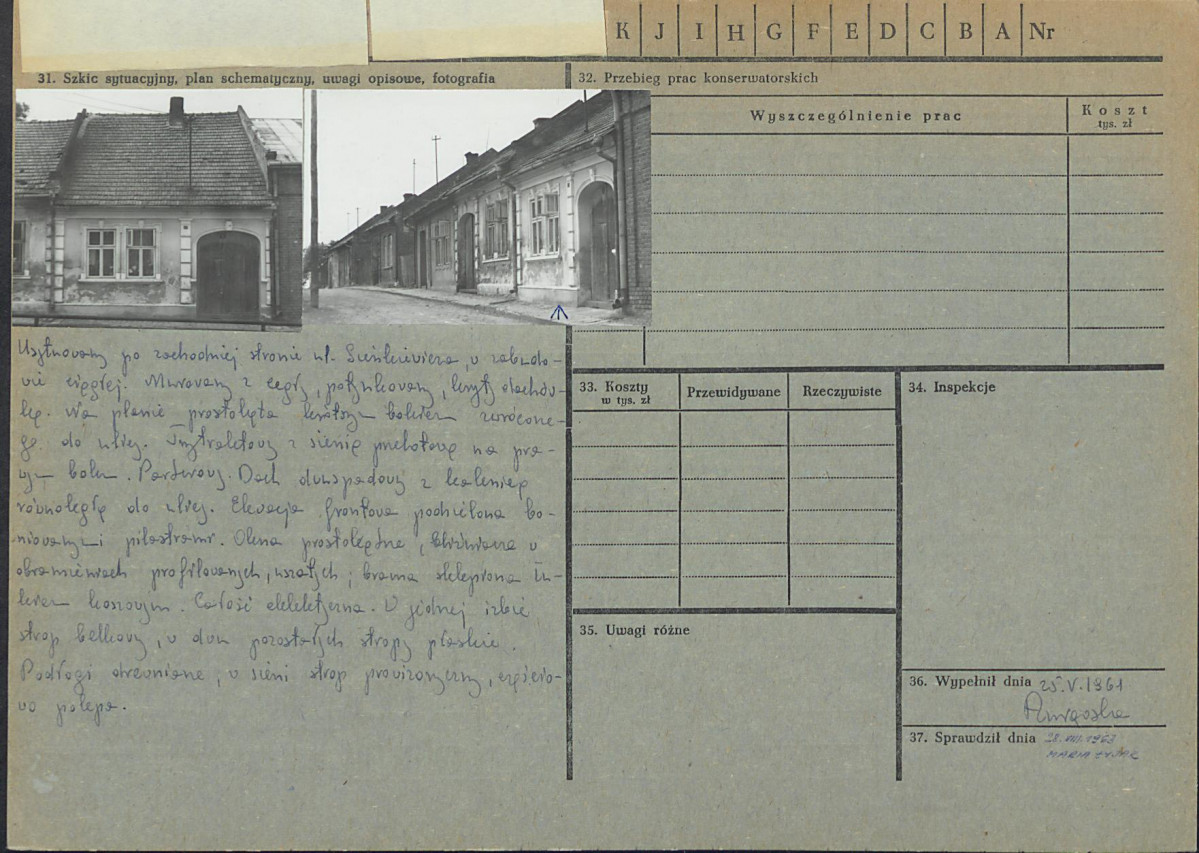 K J I H G F E D C B A Nr
31. Szkic sytuacyjny, plan schematyczny, uwagi opisowe, fotografia
Usytuowany po zachodniej stronie ul. Sienkiewicza, w zabudo-
wie ciągłej. Murowany z cegły, potynkowany, kryty dachów-
ką. Na planie prostokąta krótszym bokiem zwrócone-
go do ulicy. Trzytraktowy z sienią przelotową na pra-
wym boku. Parterowy. Dach dwuspadowy z kalenicą
równoległą do ulicy. Elewacja frontowa podzielona bo-
niowanymi pilastrami. Okna prostokątne, bliźniacze w
obramieniach profilowanych, uszatych; brama sklepiona łu-
kiem koszowym. Całość eklektyczna. W jednej izbie
strop belkowy, w dwu pozostałych stropy płaskie.
Podłogi drewniane, w sieni strop prowizoryczny, częścio-
wo polepa.
32. Przebieg prac konserwatorskich
Wyszczególnienie prac
Koszt
tys. zł
33. Koszty
w tys. zł
Przewidywane
Rzeczywiste
34. Inspekcje
35. Uwagi różne
36. Wypełnił dnia 25.V.1961
37. Sprawdził dnia 28.VIII.1963
MARIA